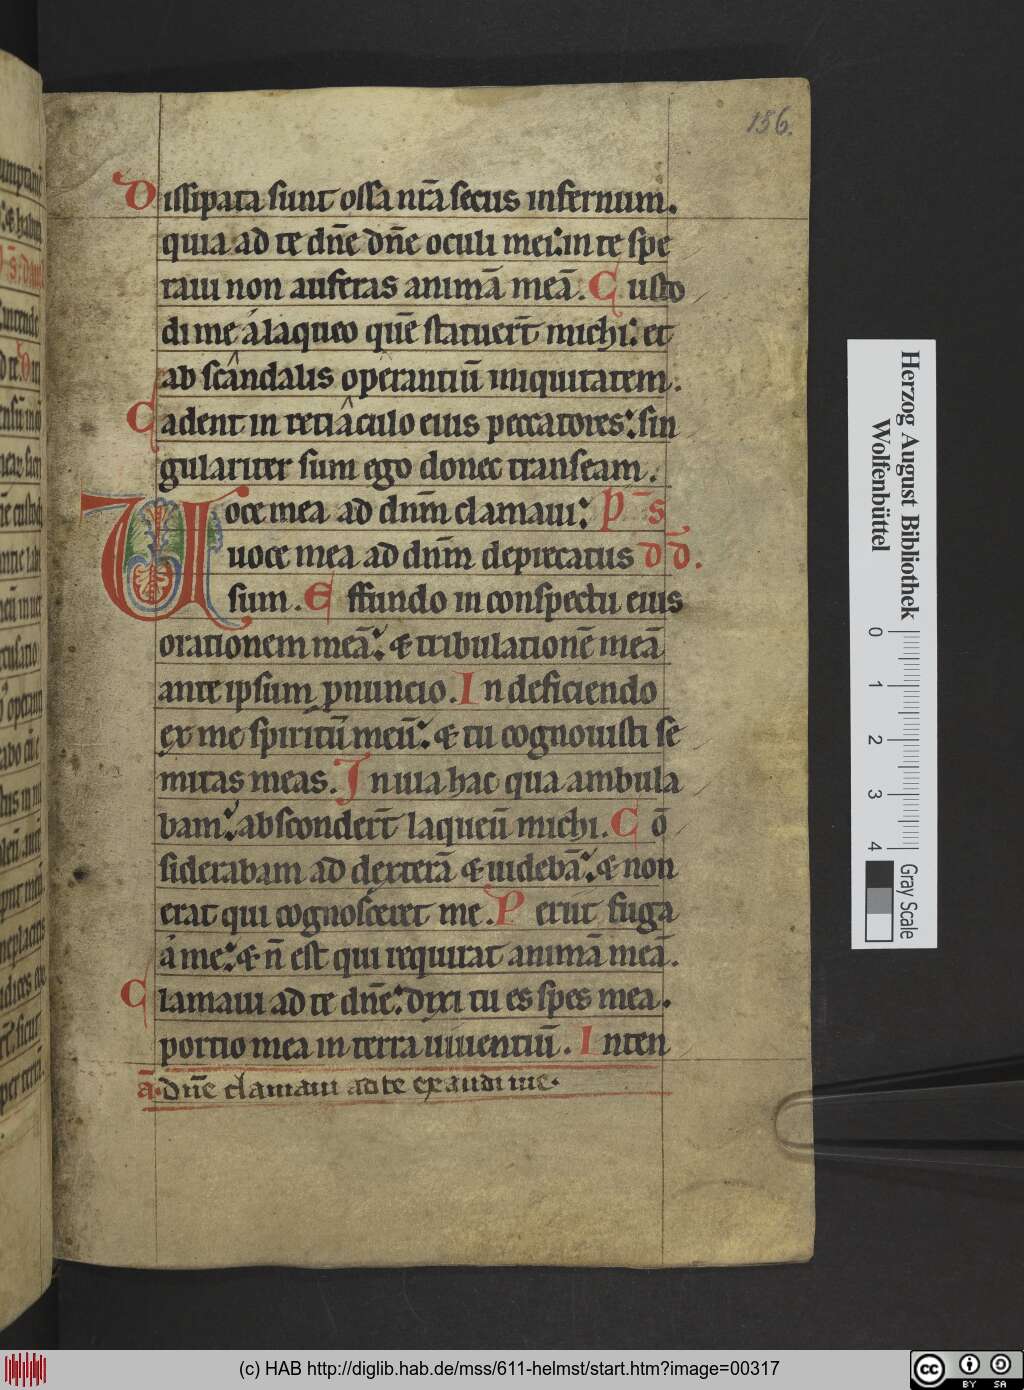 156.
Dissipata sunt ossa nr̄a secus infernum.
quia ad te dn̄e dn̄e oculi mei: in te spe
raui non auferas animā meā. Custo
di me a laqueo quē statuer̄t michi: et
ab scandalis operantiū iniquitatem.
Cadent in retiaculo eius peccatores: sin
gulariter sum ego donec transeam.
Uoce mea ad dn̄m clamaui: P̄s
uoce mea ad dn̄m deprecatus D̄D̄.
sum. Effundo in conspectu eius
orationem meā: & tribulationē meā
ante ipsum ꝓnuncio. In deficiendo
ex me spiritū meū: & tu cognouisti se
mitas meas. In uia hac qua ambula
bam: absconder̄t laqueū michi. Cō
siderabam ad dexterā & uidebā: & non
erat qui cognosceret me. Periit fuga
a me: & n̄ est qui requirat animā meā.
Clamaui ad te dn̄e: dixi tu es spes mea.
portio mea in terra uiuentiū. Inten
ā. dn̄e clamaui ad te exaudi me.
Herzog August Bibliothek
Wolfenbüttel
0 1 2 3 4
Gray Scale
(c) HAB http://diglib.hab.de/mss/611-helmst/start.htm?image=00317
cc BY SA